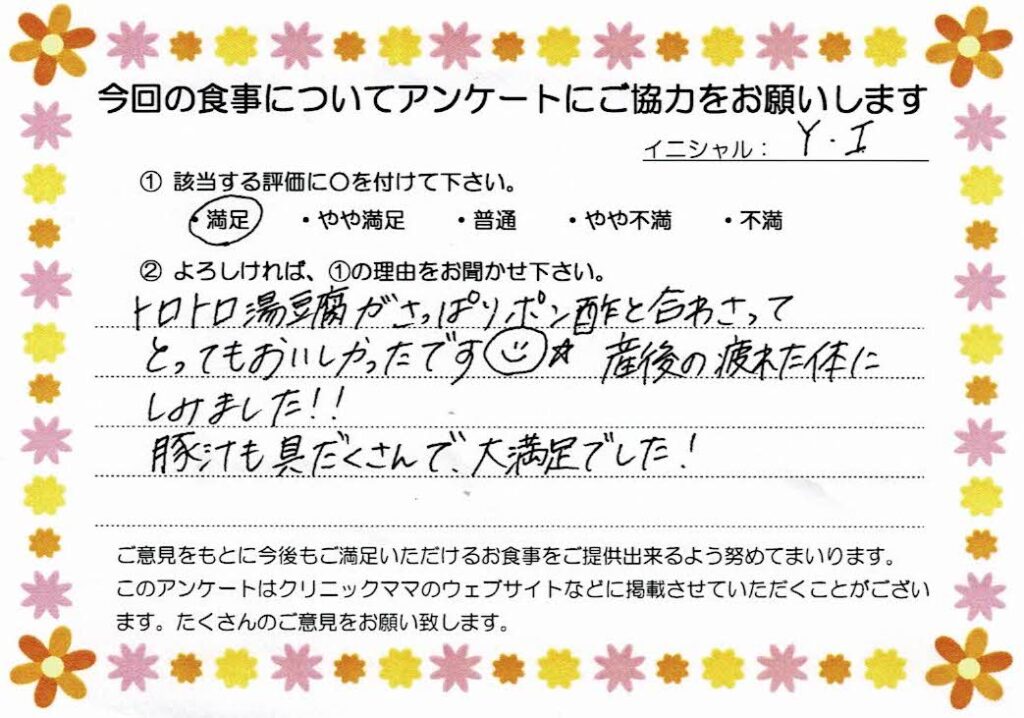 今回の食事についてアンケートにご協力をお願いします
イニシャル： Y・I
① 該当する評価に〇を付けて下さい。
・満足 ・やや満足 ・普通 ・やや不満 ・不満
② よろしければ、①の理由をお聞かせ下さい。
トロトロ湯豆腐がさっぱりポン酢と合わさって
とってもおいしかったです☺☆ 産後の疲れた体に
しみました!!
豚汁も具だくさんで、大満足でした!
ご意見をもとに今後もご満足いただけるお食事をご提供出来るよう努めてまいります。
このアンケートはクリニックママのウェブサイトなどに掲載させていただくことがござい
ます。たくさんのご意見をお願い致します。